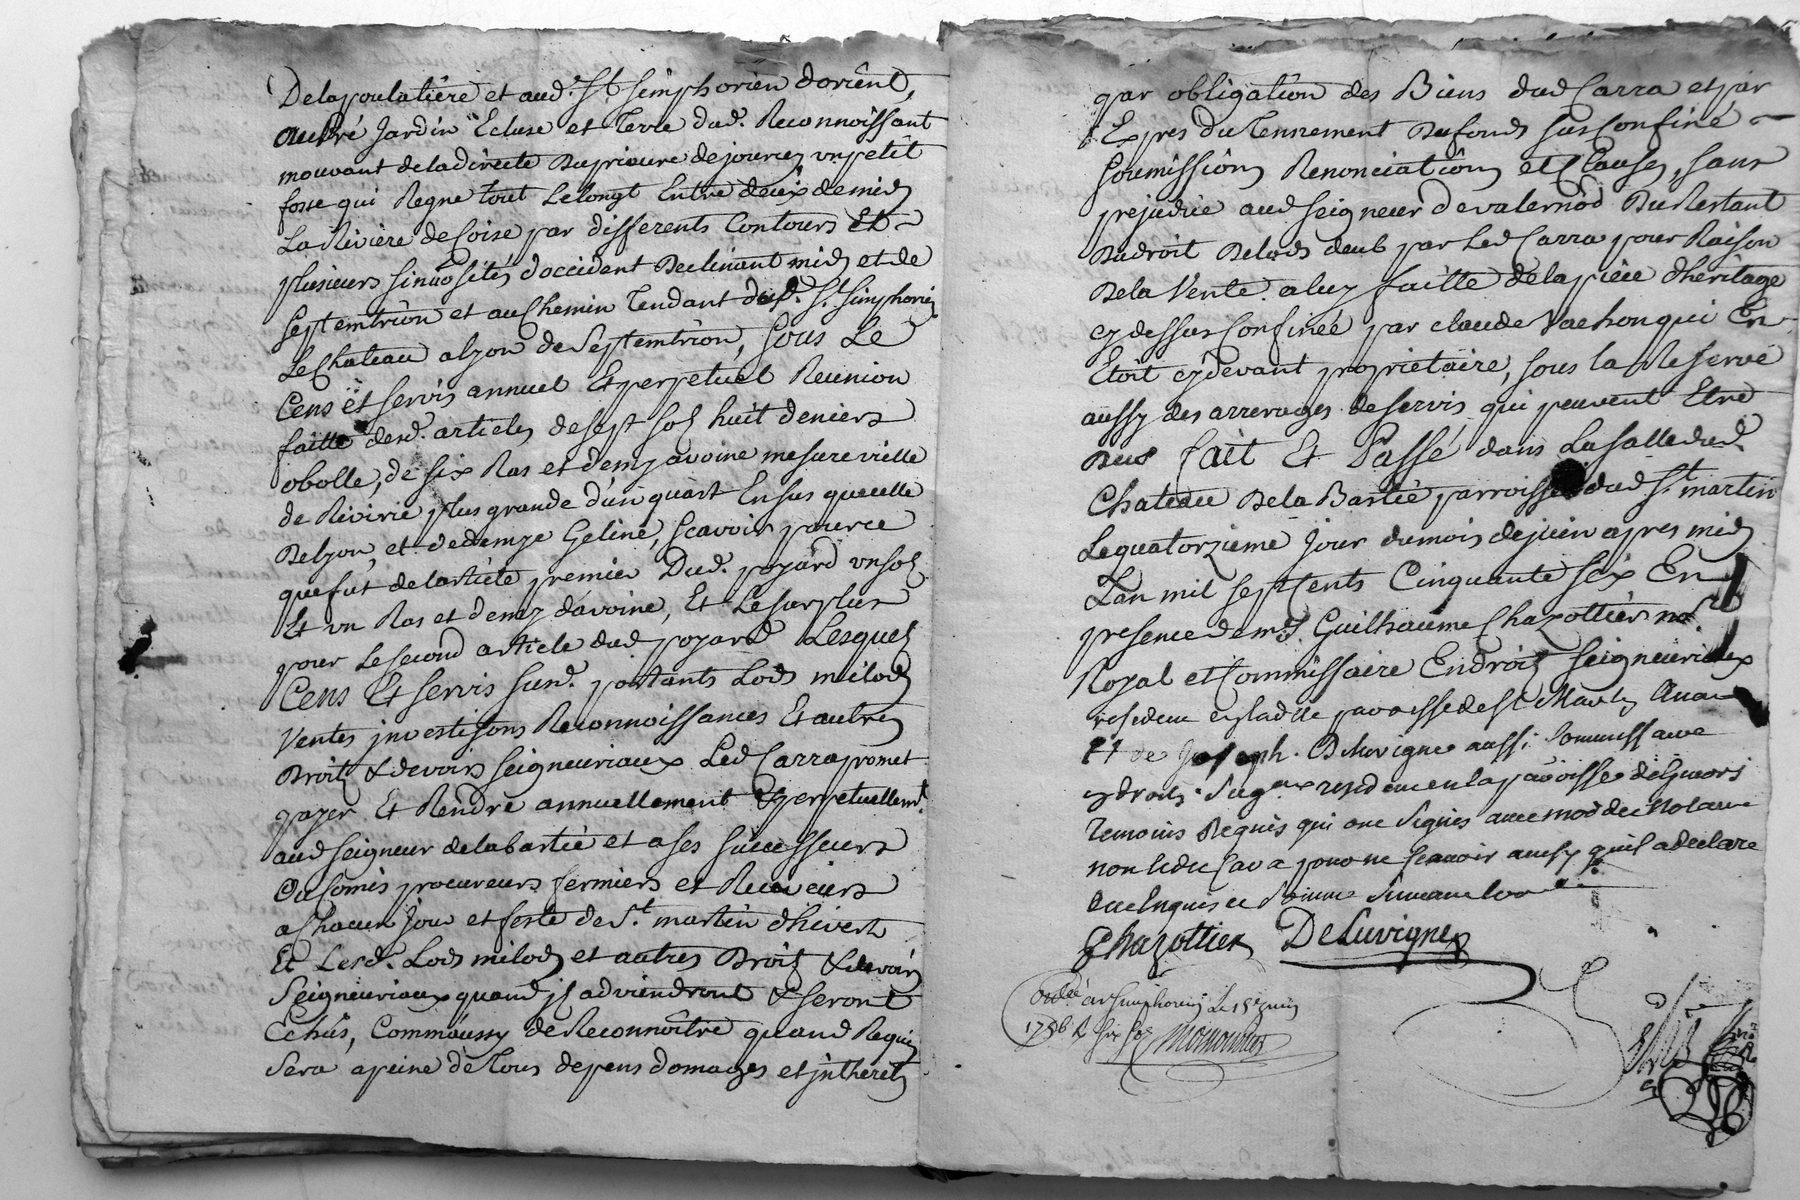 Delapoulatiere et aud. St. Simphorien dorient,
autre Jardin Ecluse et Terre dud. Reconnoissant
mouvant deladirecte Duprieure dejourcey un petit
fosse qui Regne tout Lelongt Entre deux demidy
La Riviere deCoise par differents Contours Et
plusieurs sinuosités doccident Declinant midy et de
Septemtrion et auChemin Tendant dud. St. Simphorien
LeChateau alyon deSeptemtrion, Sous Le
Cens et servis annuel Et perpetuel Reunion
faitte desd. articles desept sols huit deniers
obolle, de six Ras et demy avoine mesure vielle
de Rivirie plus grande dun quart Ensus quecelle
Delyon, et dedemye Geline, Scavoir pource
quefut delarticle premier Dud. poyard un sol
Et un Ras et demy davoine, Et Lesurplus
pour Lesecond article dud poyard Lesquels
Cens Et servis susd. portants Lods milods
Ventes jnvestisons Reconnoissances Et autres
Droits & devoirs seigneuriaux Led Carra promet
payer Et Rendre annuellement & perpetuellemt.
aud seigneur delabartie et ases successeurs
Ou Comis procureurs fermiers et Receveurs
aChacun Jour et feste de St. martin dhivert
Et Lesd. Lods milods et autres Droits & devoirs
Seigneuriaux quand jls adviendront & seront
Echus, Comm'aussy de Reconnoître quand Requis
Sera apeine de Tous depens domages et jntherets
par obligation des Biens dud Carra et par
Expres du Tennement Dufonds susConfiné
Soumissions Renonciations et Clauses, sans
prejudice aud seigneur devalernod Du Restant
Dudroit Delods deub par Led Carra pour Raison
Dela Vente aluy faitte delapiece dheritage
cy dessus Confinée par claude Vachon qui En
Etoit cydevant proprietaire, sous la Reserve
aussy des arrerages deservis qui peuvent Etre
Deus fait Et Passé dans La salle dud.
Chateau Dela Bartie parroisse dud St. martin
Lequatorzieme Jour dumois dejuin apres midy
Lan mil sept Cents Cinquante six En
presence de me. Guilhaume Chazottier nore.
Royal et Commissaire En droits Seigneuriaux
residant parroisse de St Martin
Et de Joseph Deluvigne aussi Commissaire
en droits Seigaux residant en laparoisse de
Temoins Requis qui ont Signés avec moydit Notaire
non ledit Cara pour ne scavoir ainsy quil adeclaré
de ce Enquis et Somme Suivant les
Chazottier Deluvigne
Collé a St Simphorien Le 15e juin
1756 R six sols